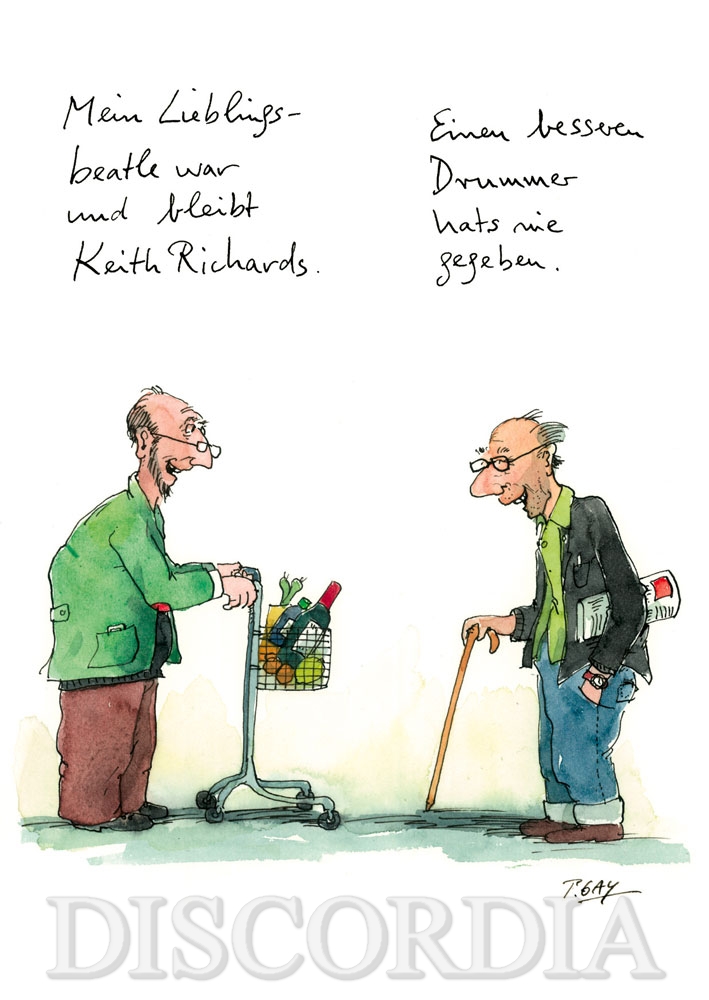 Mein Lieblings-
beatle war
und bleibt
Keith Richards.
Einen besseren
Drummer
hats nie
gegeben.
P. GAY
DISCORDIA